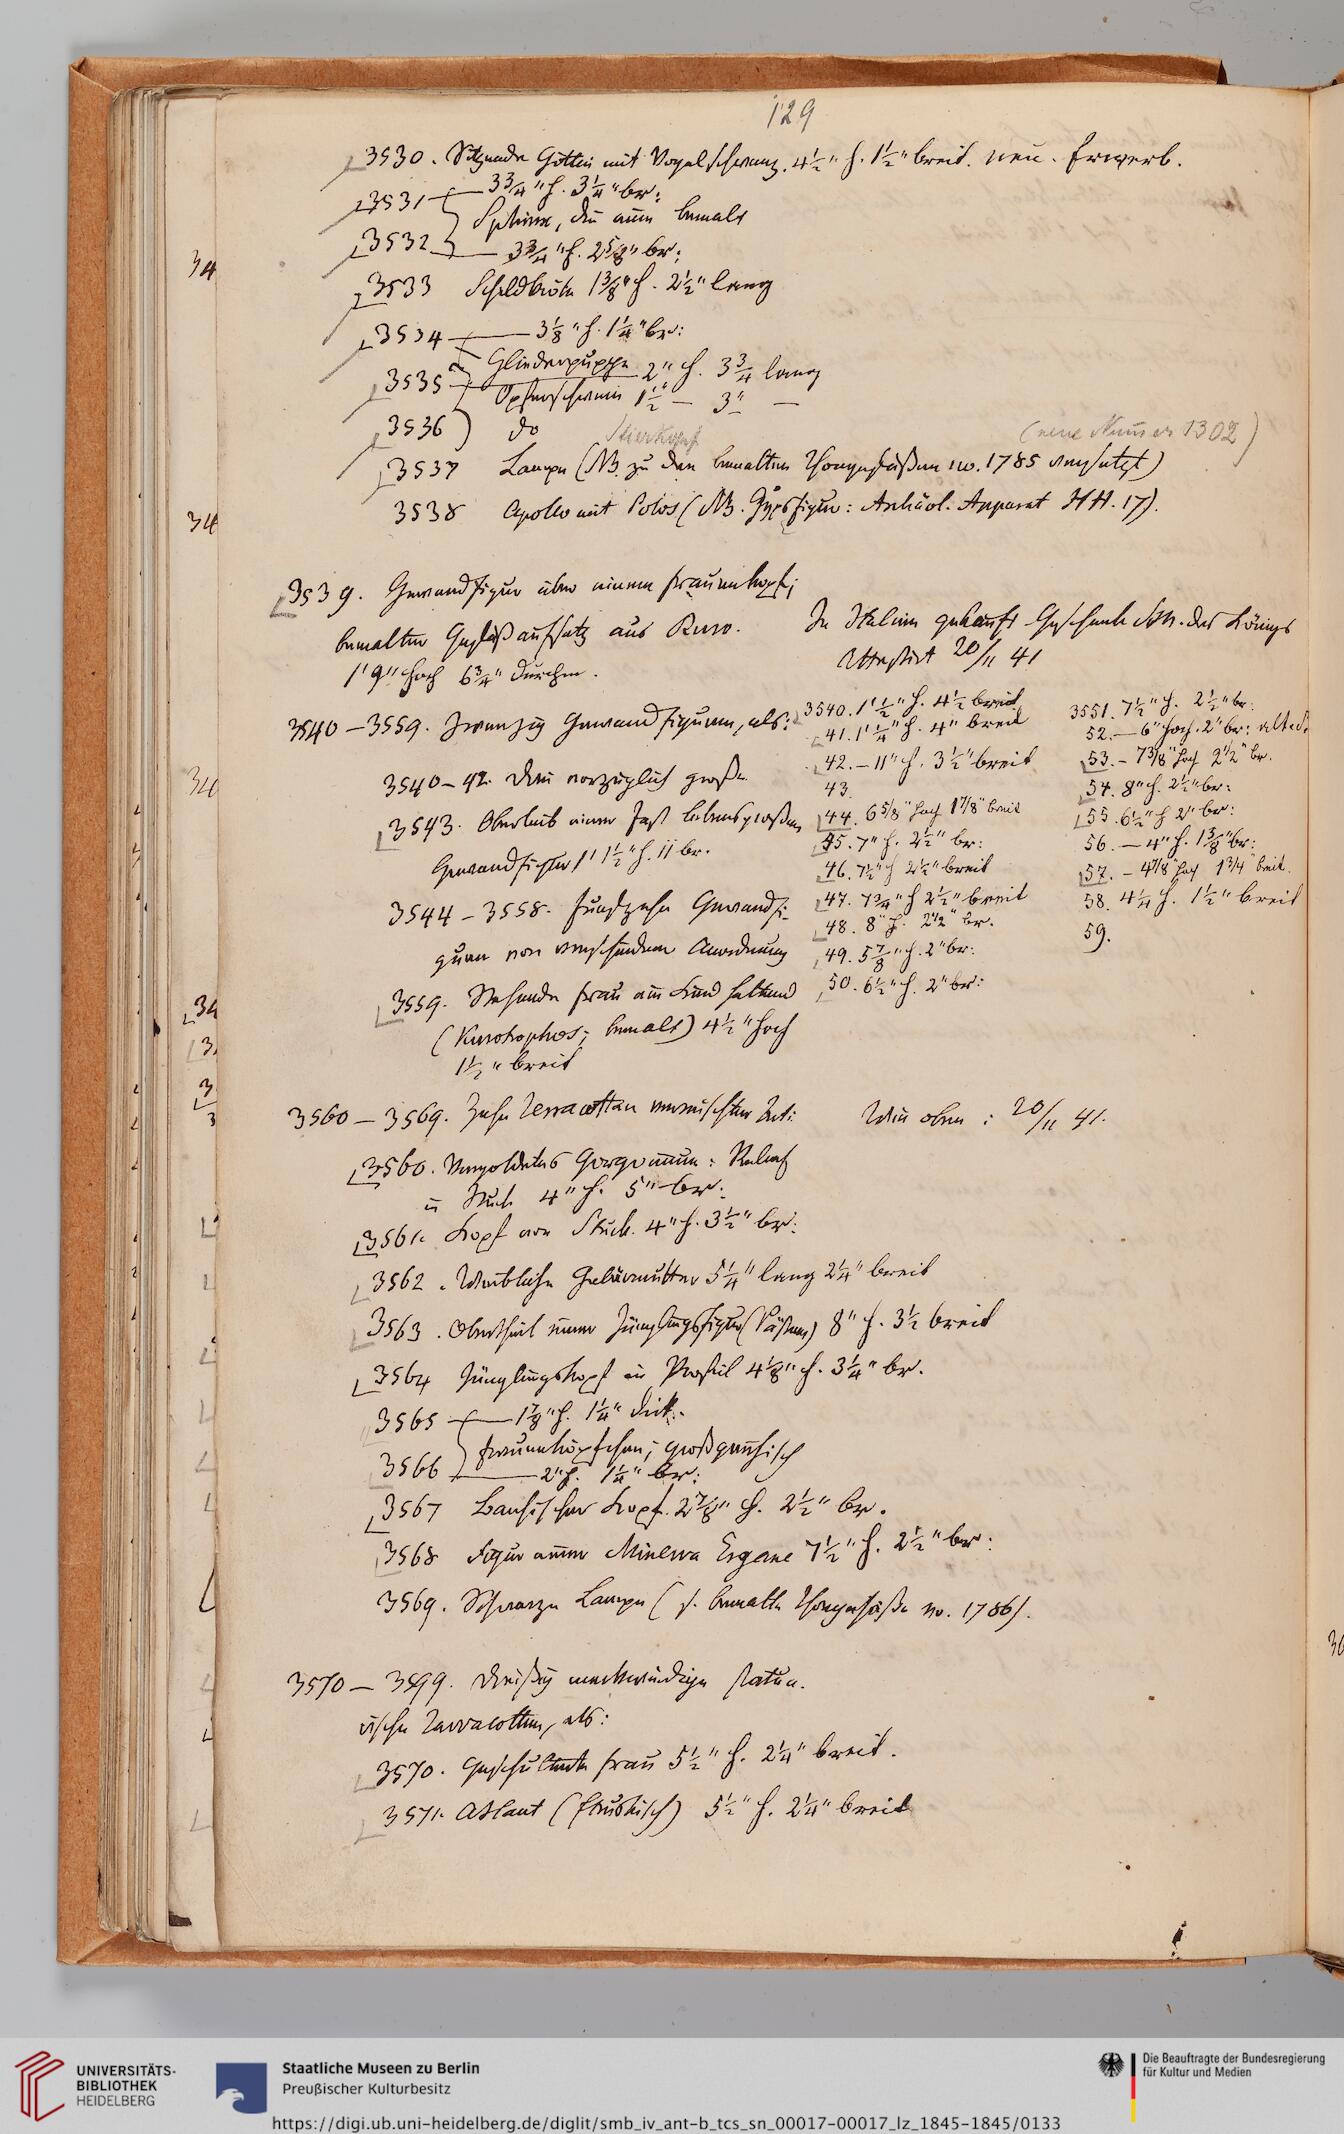 129
3530. Sitzende Göttin mit Vogelschwanz. 4½" h. 1½" breit. neu. Erwerb.
3531 3¾" h. 3¼" br:
Sphinx, die eine bemalt
3532 3¾" h. 2⅝" br:
3533 Schildkröte 1⅜" h. 2½" lang
3534 3⅛" h. 1¼" br:
Gliederpuppe
3535 2" h. 3¾ lang
Opferschwein 1½" — 3" —
3536 do Stierkopf
(neue Nummer 1302)
3537 Lampe (NB. zu den bemalten Thongefäßen no. 1785 versetzt)
3538 Apollo mit Polos (NB. Gypsfigur: Archäol. Apparat HH. 17).
3539. Gewandfigur über einem Frauenkopf;
bemalter Gefäßaufsatz aus Ruvo.
1' 9" hoch 6¾" Durchm.
In Italien gekauft Geschenk Sr. M. des Königs
Attestirt 20/11 41
3540—3559. Zwanzig Gewandfiguren, als:
3540–42. Drei vorzüglich große
3543. Obertheil einer fast lebensgroßen
Gewandfigur 1' 1½" h. 11 br.
3544–3558. Fünfzehn Gewandfi-
guren von verschiedener Anordnung
3559. Stehende Frau ein Kind haltend
(Kurotrophos; bemalt) 4½" hoch
1½" breit
3540. 1' ½" h. 4½ breit
41. 1' ¼" h. 4" breit
42. – 11" h. 3½" breit
43.
44. 6⅝" hoch 1⅞" breit
45. 7" h. 2½" br:
46. 7½" h 2½" breit
47. 7¾" h 2½" breit
48. 8" h. 2½" br.
49. 5⅞" h. 2" br:
50. 6½" h. 2" br:
3551. 7½" h. 2½" br.
52. — 6" hoch. 2" br:
53. – 7⅜" hoch 2½" br.
54. 8" h. 2½" br:
55. 6½" h 2" br:
56. — 4" h. 1⅜" br:
57. – 4⅞" hoch 1¾" breit.
58. 4¼ h. 1½" breit
59.
3560 — 3569. Zehn Terracotten vermischter Art:
Wie oben: 20/11 41.
3560. Vergoldetes Gorgoneion: Relief
in Stuck 4" h. 5" br:
3561. Kopf von Stuck. 4" h. 3½" br:
3562. Weibliche Gebärmutter 5¼" lang 2¼" breit
3563. Obertheil einer Jünglingsfigur (Pästum) 8" h. 3½ breit
3564 Jünglingskopf in Profil 4⅛" h. 3¼" br.
3565 1⅞" h. 1¼" dick.
Frauenköpfchen; großgriechisch
3566 2" h. 1¼" br:
3567 Bacchischer Kopf. 2⅞" h. 2½" br.
3568 Figur einer Minerva Ergane 7½" h. 2½" br:
3569. Schwarze Lampe (s. bemalte Thongefäße no. 1786).
3570 — 3599. Dreißig merkwürdige statua-
rische Terracotten, als:
3570. Geschultete Frau 5½" h. 2¼" breit.
3571. Atlant (Etruskisch) 5½" h. 2¼" breit
34
34
34
34
UNIVERSITÄTS-
BIBLIOTHEK
HEIDELBERG
Staatliche Museen zu Berlin
Preußischer Kulturbesitz
Die Beauftragte der Bundesregierung
für Kultur und Medien
https://digi.ub.uni-heidelberg.de/diglit/smb_iv_ant-b_tcs_sn_00017-00017_lz_1845-1845/0133